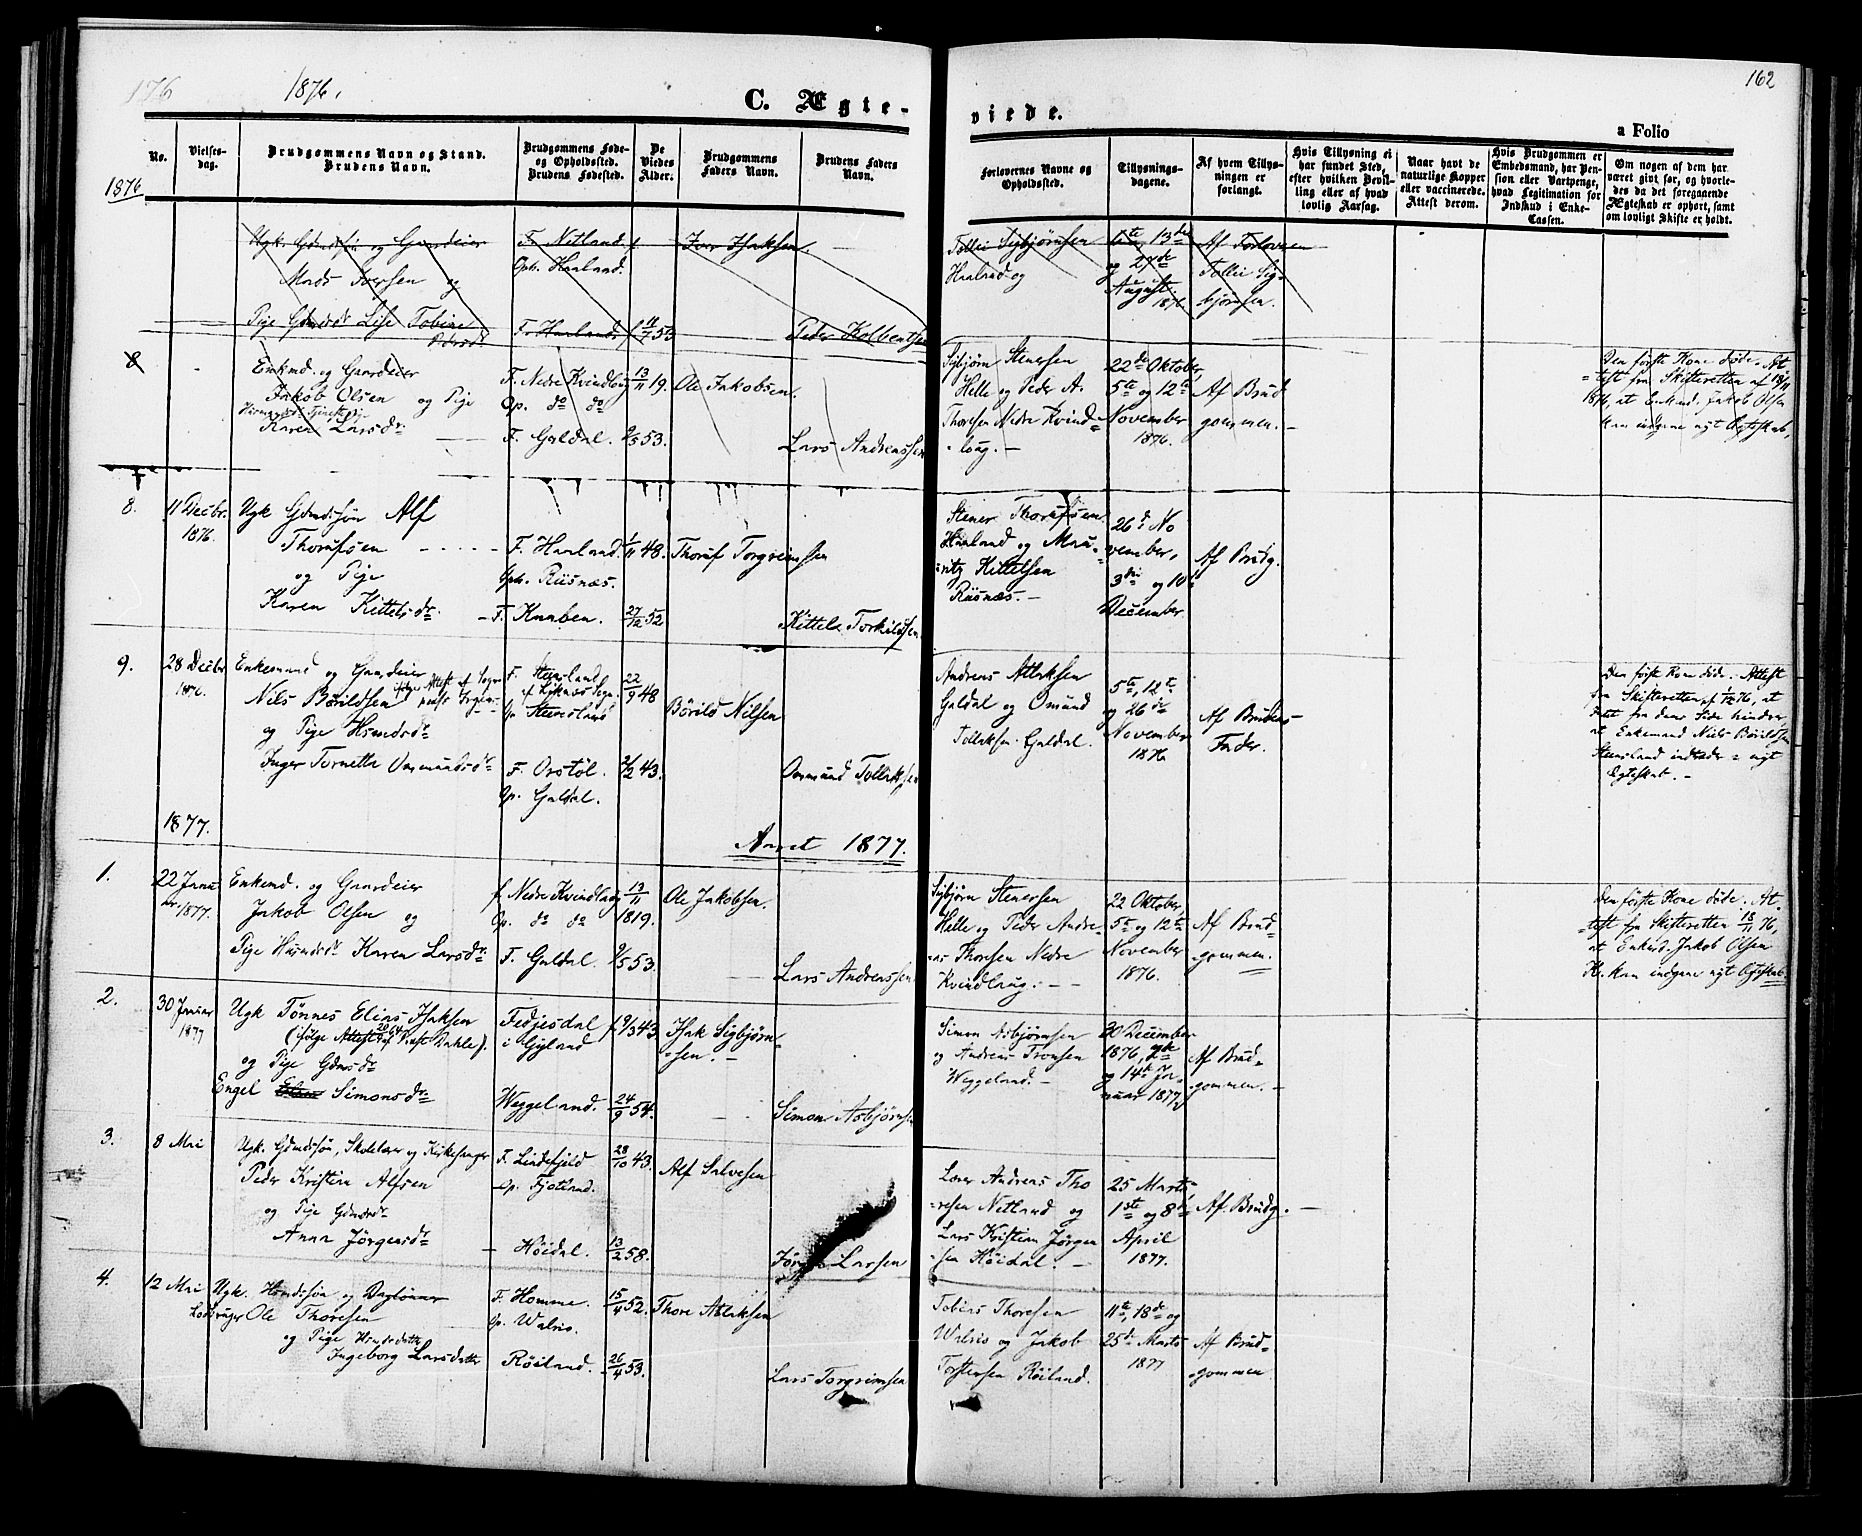 176
1876.
162
C. Ægte-
viede.
a Folio
No.
Vielses-
dag.
Brudgommens Navn og Stand.
Brudens Navn.
Brudgommens Føde-
og Opholdssted.
Brudens Fødested.
De
Viedes
Alder.
Brudgommens
Faders Navn.
Brudens Faders
Navn.
Forlovernes Navne og
Opholdssted.
Tillysnings-
dagene.
Af hvem Tillys-
ningen er
forlangt.
Hvis Tillysning ei
har fundet Sted,
efter hvilken Bevil-
ling eller af hvad
lovlig Aarsag.
Naar havt de
naturlige Kopper
eller vaccinerede.
Attest derom.
Hvis Brudgommen er
Embedsmand, har Pen-
sion eller Vartpenge,
hvad Legitimation for
Indskud i Enke-
Cassen.
Om nogen af dem har
været givt før, og hvorle-
des da det foregaaende
Ægteskab er ophørt, samt
om lovligt Skifte er holdt.
1876
Ugk. Gdmdssøn og Gaardeier
Mads Iversen og
Pige Gdmdsdr Lise Tobine
Pedersdr
F. Netland
Oph. Haaland.
F. Haaland 11/7 55
Iver Isaksen
Peder Kolbentsen
Tollie Sigbjørnsen
Haaland og
6te, 13de
og 27de
August
1876.
Af Forloveren
Tollie Sig-
bjørnsen.
8
Enkmd. og Gaardeier
Jakob Olsen og Pige
Karen Larsdr
F. Nedre Kvindlaug
Op. do do
F. Galdal.
13/11 19.
9/5 53.
Ole Jakobsen.
Lars Andreassen
Sigbjørn Stenersen
Helle og Peder A.
Thoresen Nedre Kvind-
laug.
22de Oktober,
5te og 12te
November
1876.
Af Brud
gommen.
Den første Kone døde. At-
test fra Skifteretten af 18/11
1876, at Enkemd. Jakob Olsen
kan indgaae nyt Egteskab.
8.
11 Decbr.
1876.
Ugk Gdmdssøn Alf
Thorufsen
og Pige
Karen Kittelsdr.
F. Haaland.
Oph. Risnæs.
F. Knaben.
1/11 48.
27/12 52
Thoruf Torgrimsen
Kittel Torkildsen.
Stener Thorufsen
Haaland og Mau-
ritz Kittelsen
Risnæs.
26de No
vember,
3die og 10de
December
Af Brudg.
9.
28 Decbr
1876.
Enkemand og Gaardeier
Nils Børildsen
og Pige Hsmdsdr
Inger Tornette Ommundsdr
F. Steensland
af Liknes Sogn.
Op. Steensland
F. Orstöl.
Op. Galdal.
22/9 48
2/2 43.
Börild Nilsen
Ommund Tollaksen
Andreas Atlaksen
Galdal og Omund
Tollaksen Galdal.
5te, 12te
og 26de
November
1876
Af Brudens
Fader.
Den første Kone døde. Attest
fra Skifteretten af 1/12 76, at
Intet fra dens Side hindrer,
at Enkemand Niels Börildsen
Steensland indtræder i nyt
Egteskab.
1877.
Aaret 1877.
1.
22 Janu
ar. 1877.
Enkemd. og Gaardeier
Jakob Olsen og
Pige Hsmdsdr Karen Larsdr.
f. Nedre Kvindlaug
Op. do do
F. Galdal.
13/11
1819.
9/5 53.
Ole Jakobsen.
Lars Andreassen
Sigbjørn Stenersen
Helle og Peder Andre-
as Thoresen Nedre
Kvindlaug.
22 Oktober
5te og 12te
November
1876.
Af Brud-
gommen.
Den første Kone døde. At-
test fra Skifteretten 18/11 76,
at Enkemd. Jakob Olsen
K. kan indgaae nyt Egteskab
2.
30 Januar
1877
Ugk Tönnes Elias Isaksen
(ifølge Attest af Præst Dahle).
og Pige Gdmdsdr
Engel Simonsdr
Fedjesdal
i Gyland
Weggeland.
9/3 43.
24/9 54.
Isak Sigbjørn-
sen.
Simon Asbjørnsen
Simon Asbjørnsen
og Andreas Tronsen
Weggeland.
20 December
1876, 7de
og 14de Ja-
nuar 1877
Af Brud-
gommen.
3.
8 Mai
Ugk. Gdmdssøn, Skolelærer og Kirkesanger
Peder Kristian Alfsen
og Pige Gdmdsdr
Anna Jørgensdr
F. Lindefjeld
Op. Fjotland.
Höidal.
28/10 43.
13/2 58.
Alf Salvesen
Larsen
Lærer Andreas Tho
resen Netland og
Lars Kristian Jørgen
sen Höidal.
25 Marts
1ste og 8de
April
1877.
Af Brudg.
4.
12 Mai
Ugk. Hsmdssøn og Dagløner
Ole Thoresen
og Pige Hsmdsdatter
Ingeborg Larsdatter
F. Homme.
Op. Walris.
Röiland.
15/4 52.
26/4 53.
Thore Atlaksen
Lars Torgrimsen
Tobias Thoresen
Walris og Jakob
Torstensen Röiland.
11te, 18de og
25de Marts
1877
Af Brud-
gommen